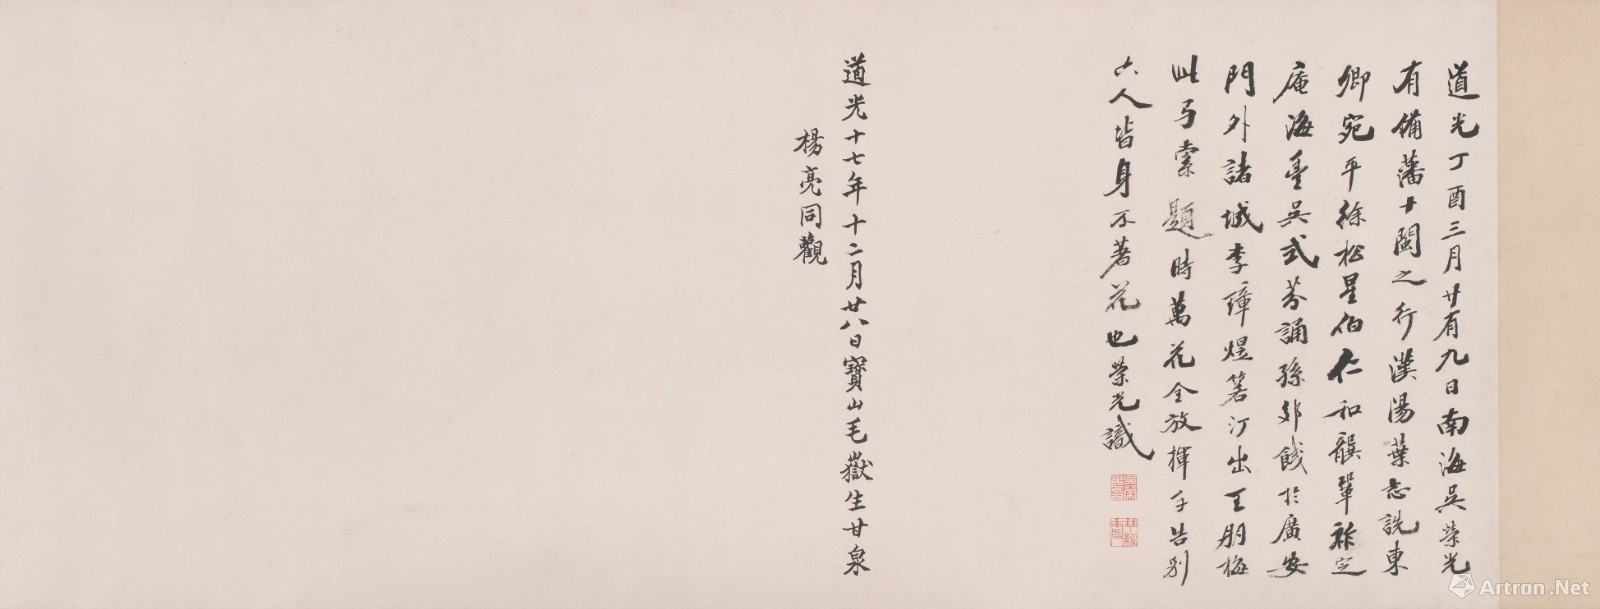 道光丁酉三月廿有九日南海吳榮光
有備藩十閩之行漢陽葉志詵東
卿宛平徐松星伯仁和龔鞏祚定
庵海豐吳式芬誦孫郊餞於廣安
門外諸城李璋煜箬汀出王朋梅
此弓索題時萬花全放揮手告別
六人皆身不著花也榮光識
道光十七年十二月廿八日寶山毛嶽生甘泉
楊亮同觀
Artron.Net